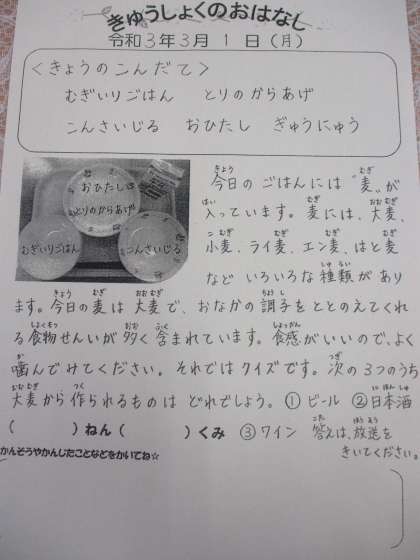 きゅうしょくのおはなし
令和3年3月1日(月)
<きょうのこんだて>
むぎいりごはん とりのからあげ
こんさいじる おひたし ぎゅうにゅう
おひたし
とりのからあげ
むぎいりごはん
こんさいじる
今日のごはんには“麦”が
入っています。麦には、大麦、
小麦、ライ麦、エン麦、はと麦
など いろいろな種類があり
ます。今日の麦は大麦で、おなかの調子をととのえてくれ
る食物せんいが多く含まれています。食感がいいので、よく
噛んでみてください。それではクイズです。次の3つのうち
大麦から作られるものは どれでしょう。① ビール ②日本酒
( )ねん( )くみ ③ワイン 答えは、放送を
きいてください。
かんそうやかんじたことなどをかいてね☆